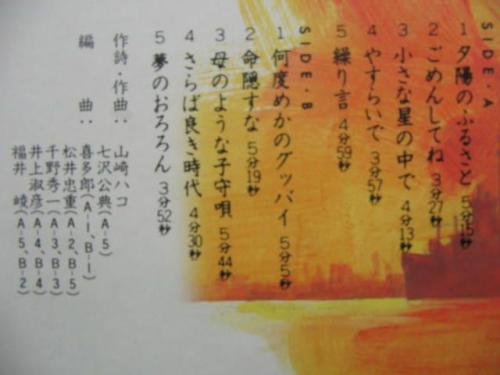 SIDE・A
1 夕陽のふるさと 5分15秒
2 ごめんしてね 3分27秒
3 小さな星の中で 4分13秒
4 やすらいで 3分57秒
5 繰り言 4分59秒
SIDE・B
1 何度めかのグッバイ 5分5秒
2 命隠すな 5分19秒
3 母のような子守唄 5分44秒
4 さらば良き時代 4分30秒
5 夢のおろろん 3分52秒
作詩・作曲：山崎ハコ
編　曲：七沢公典（A-5）
喜多郎（A-1、B-1）
松井忠重（A-2、B-5）
千野秀一（A-3、B-3）
井上淑彦（A-4、B-4）
福井 崚（A-5、B-2）